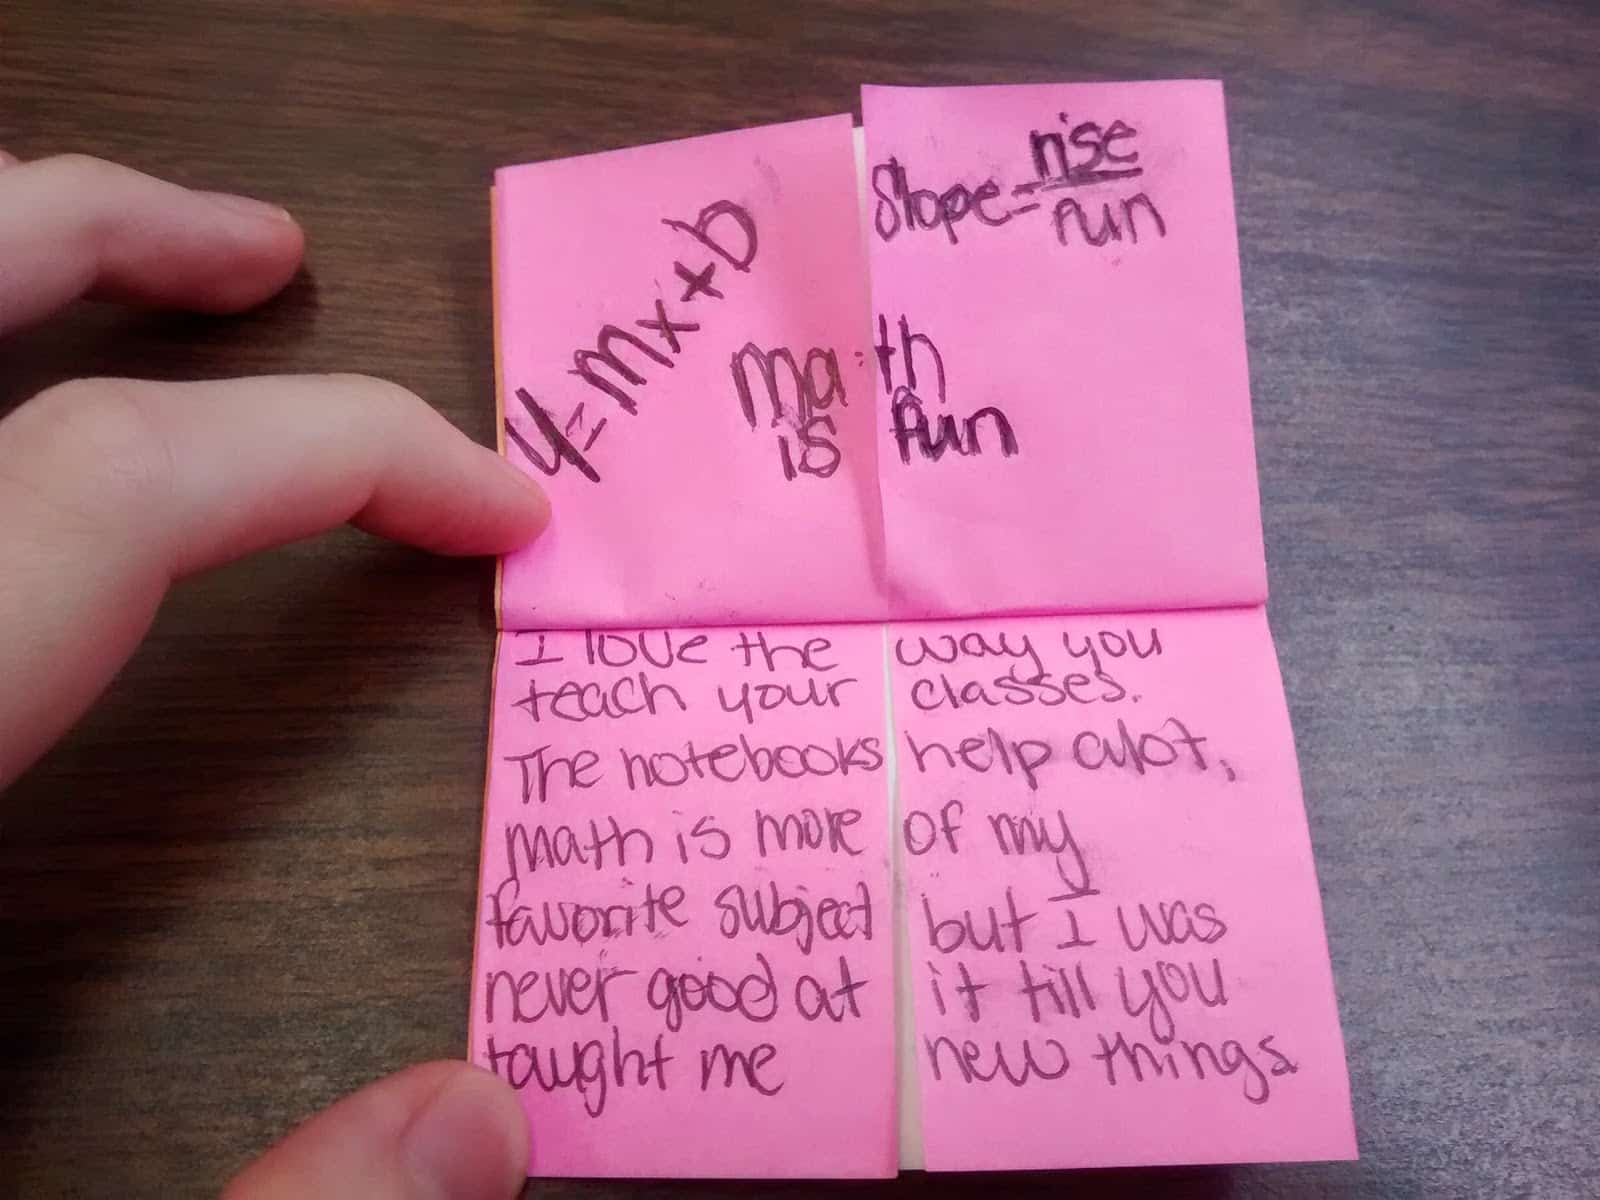 y=mx+b
Slope=rise/run
math
is fun
I love the way you
teach your classes.
The notebooks help alot,
math is more of my
favorite subject but I was
never good at it till you
taught me new things